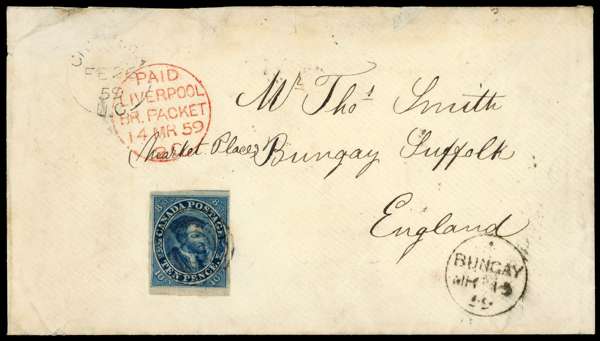 FE
59
PAID
LIVERPOOL
BR. PACKET
14 MR 59
Mr. Thos. Smith
(Market Place) Bungay Suffolk
England
CANADA POSTAGE
TEN PENCE
BUNGAY
MR
59